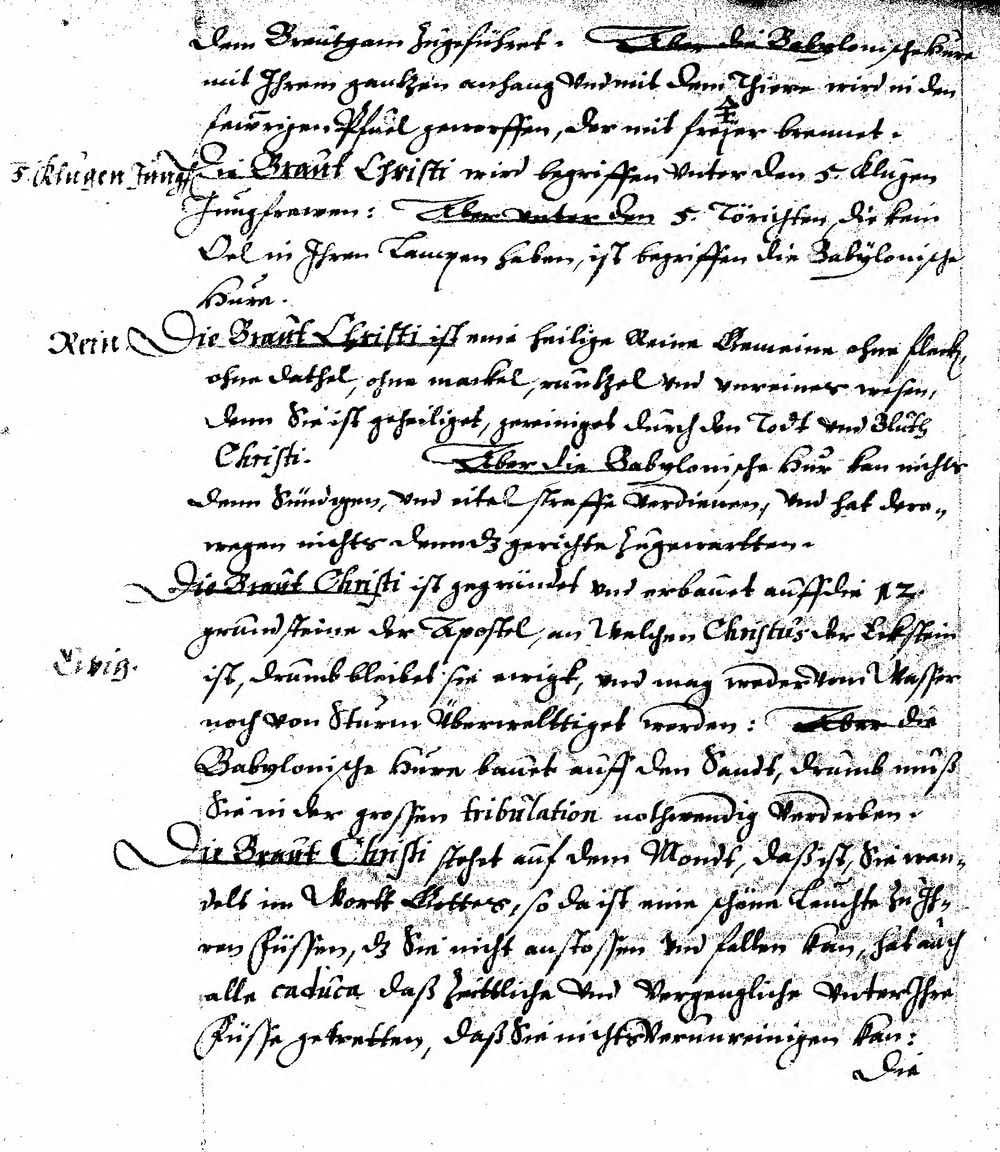 dem Breutgam zugeführet. Aber die Babylonische Hure
mit Ihrem gantzen anhang Vnd mit dem Thiere wird in den
fewrigen Pfuel geworffen, der mit brennet.
5. Klugen Jungf.
Die Braut Christi wird begriffen Vnter den 5. Klugen
Jungfrawen: Aber vnter den 5. Törichten, die kein
Oel in Ihren Lampen haben, ist begriffen die Babylonische
Hure.
Rein
Die Braut Christi ist eine heilige Reine Gemeine ohne fleck,
ohne dathel, ohne mackel, runtzel vnd vnreines wesen,
denn Sie ist geheiliget, gereiniget durch den Todt vnd Bluth
Christi. Aber die Babylonische Hur kan nichts
denn Sündigen, vnd eitel straffe Verdienen, Vnd hat dero-
wegen nichts denn dz gerichte zugewartten.
Die Braut Christi ist gegründet vnd erbauet auff die 12.
grundsteine der Apostel, an Welchen Christus der Eckstein
Ewig.
ist, drumb bleibet sie ewigk, vnd mag weder vom Wasser
noch von Sturm Vberwelttiget werden: Aber die
Babylonische Hure bauet auff den Sandt, drumb muß
Sie in der grossen tribulation nothwendig Verderben.
Die Braut Christi stehet auf dem Mondt, daß ist, Sie wan-
delt im Wortt Gottes, so da ist eine schöne Leuchte zu Ih-
ren Füssen, dz Sie nicht anstossen Vnd fallen kan, hat auch
alle caduca daß zeittliche Vnd Vergengliche Vnter Ihre
Füsse getretten, daß Sie nichts Verunreinigen kan:
Die